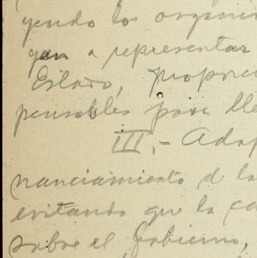 yendo los organi
yan a representar
Estado, propor
pensables para lle
III.- Adap
nanciamiento de la
evitando que la ca
sobre el Gobierno,